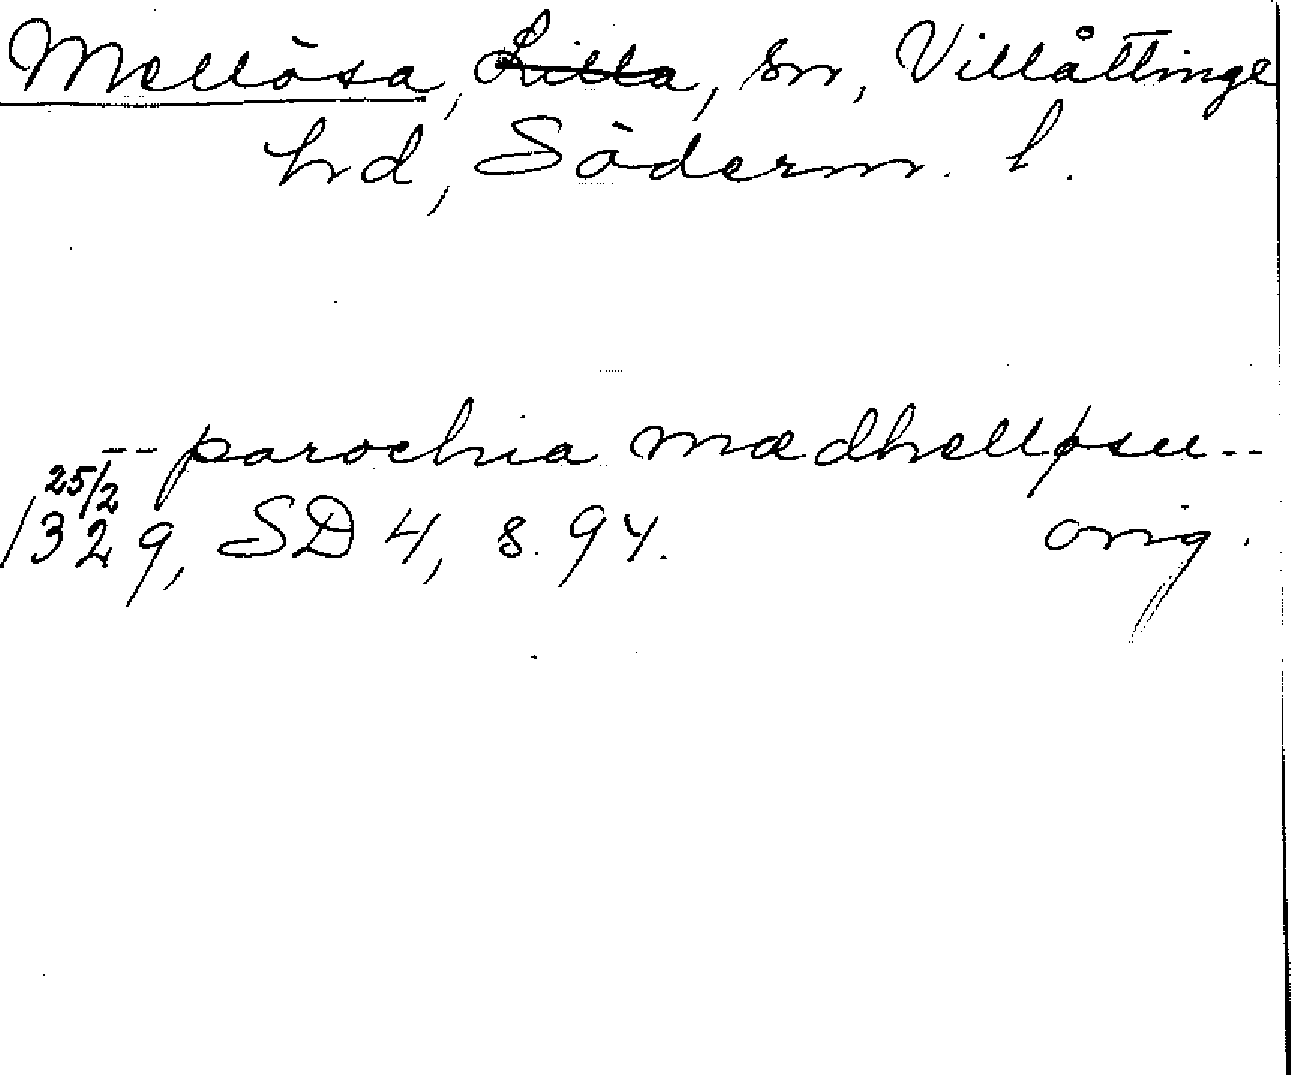 Mellösa, Lilla, sn, Villåttinge
hd, Söderm. l.
-- parochia mædhelløsu --
25/2
1329, SD 4, s. 94. orig.